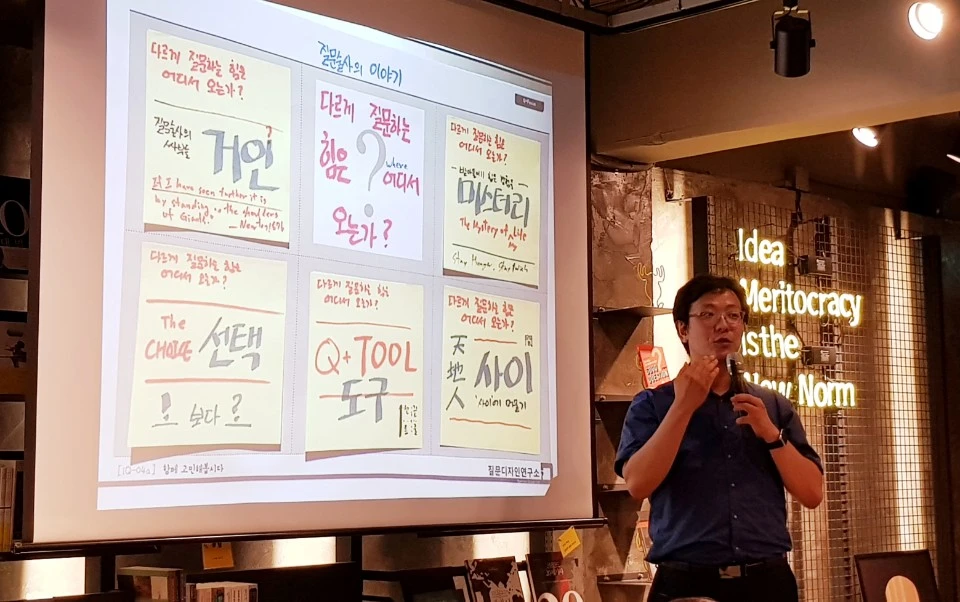 질문술사의 이야기
다르게 질문하는 힘은
어디서 오는가?
질문술사의
거인
If I have seen further it is
by standing on the shoulders
of Giants.
다르게 질문하는
힘은 ? where 어디서
오는가?
다르게 질문하는 힘은
어디서 오는가?
미스터리
The Mystery of Life
다르게 질문하는 힘은
어디서 오는가?
The
CHOICE 선택
! 보다 ?
다르게 질문하는 힘은
어디서 오는가?
Q+TOOL
도구
다르게 질문하는 힘은
어디서 오는가?
사이
'사이'에 머물기
함께 고민해봅시다
질문디자인연구소
Idea
Meritocracy
is the
New Norm